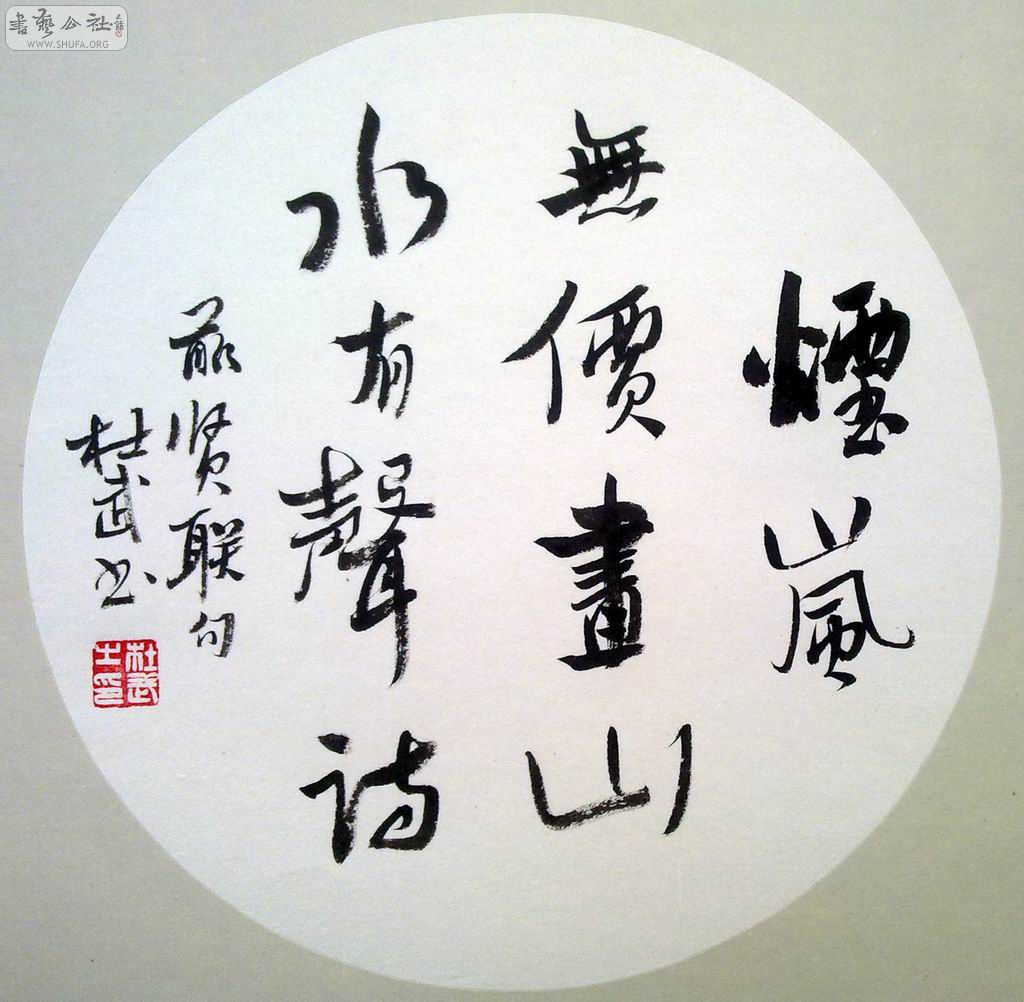 書藝公社
WWW.SHUFA.ORG
煙嵐
無價畫山
水有聲詩
前贤联句
杜武书
杜武之印